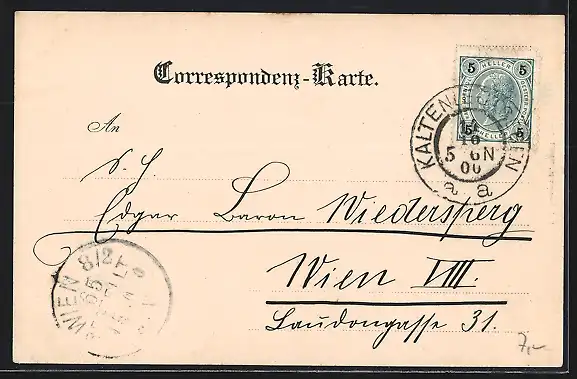 Correspondenz-Karte.
5 HELLER 5
5 HELLER 5
KALTENL
EN
5 6N
00
a a
An
S. H.
Edgar Baron Wiedersperg
Wien VIII.
Laudongasse 31.
WIEN 8/2
7,-